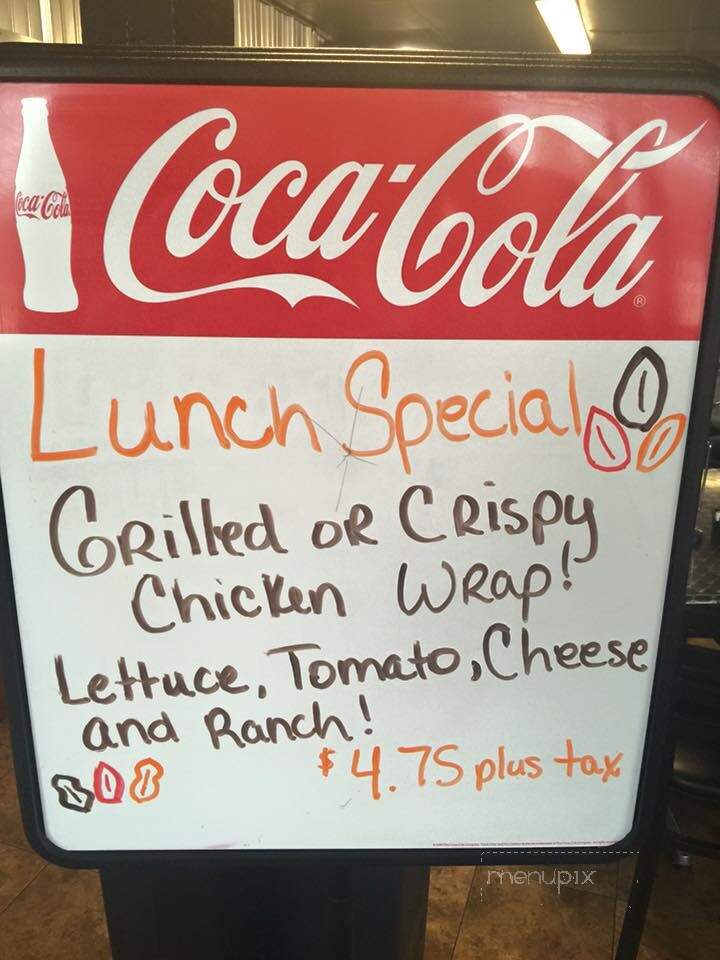 Coca-Cola
Coca-Cola ®
Lunch Special
Grilled or Crispy
Chicken Wrap!
Lettuce, Tomato, Cheese
and Ranch!
$4.75 plus tax
menupix